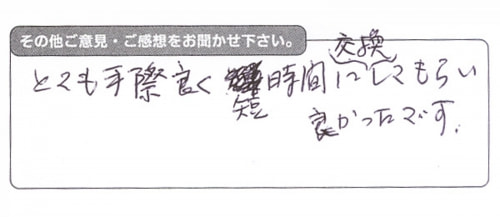 その他ご意見・ご感想をお聞かせ下さい。
とても手際良く短時間に交換してもらい
良かったです.